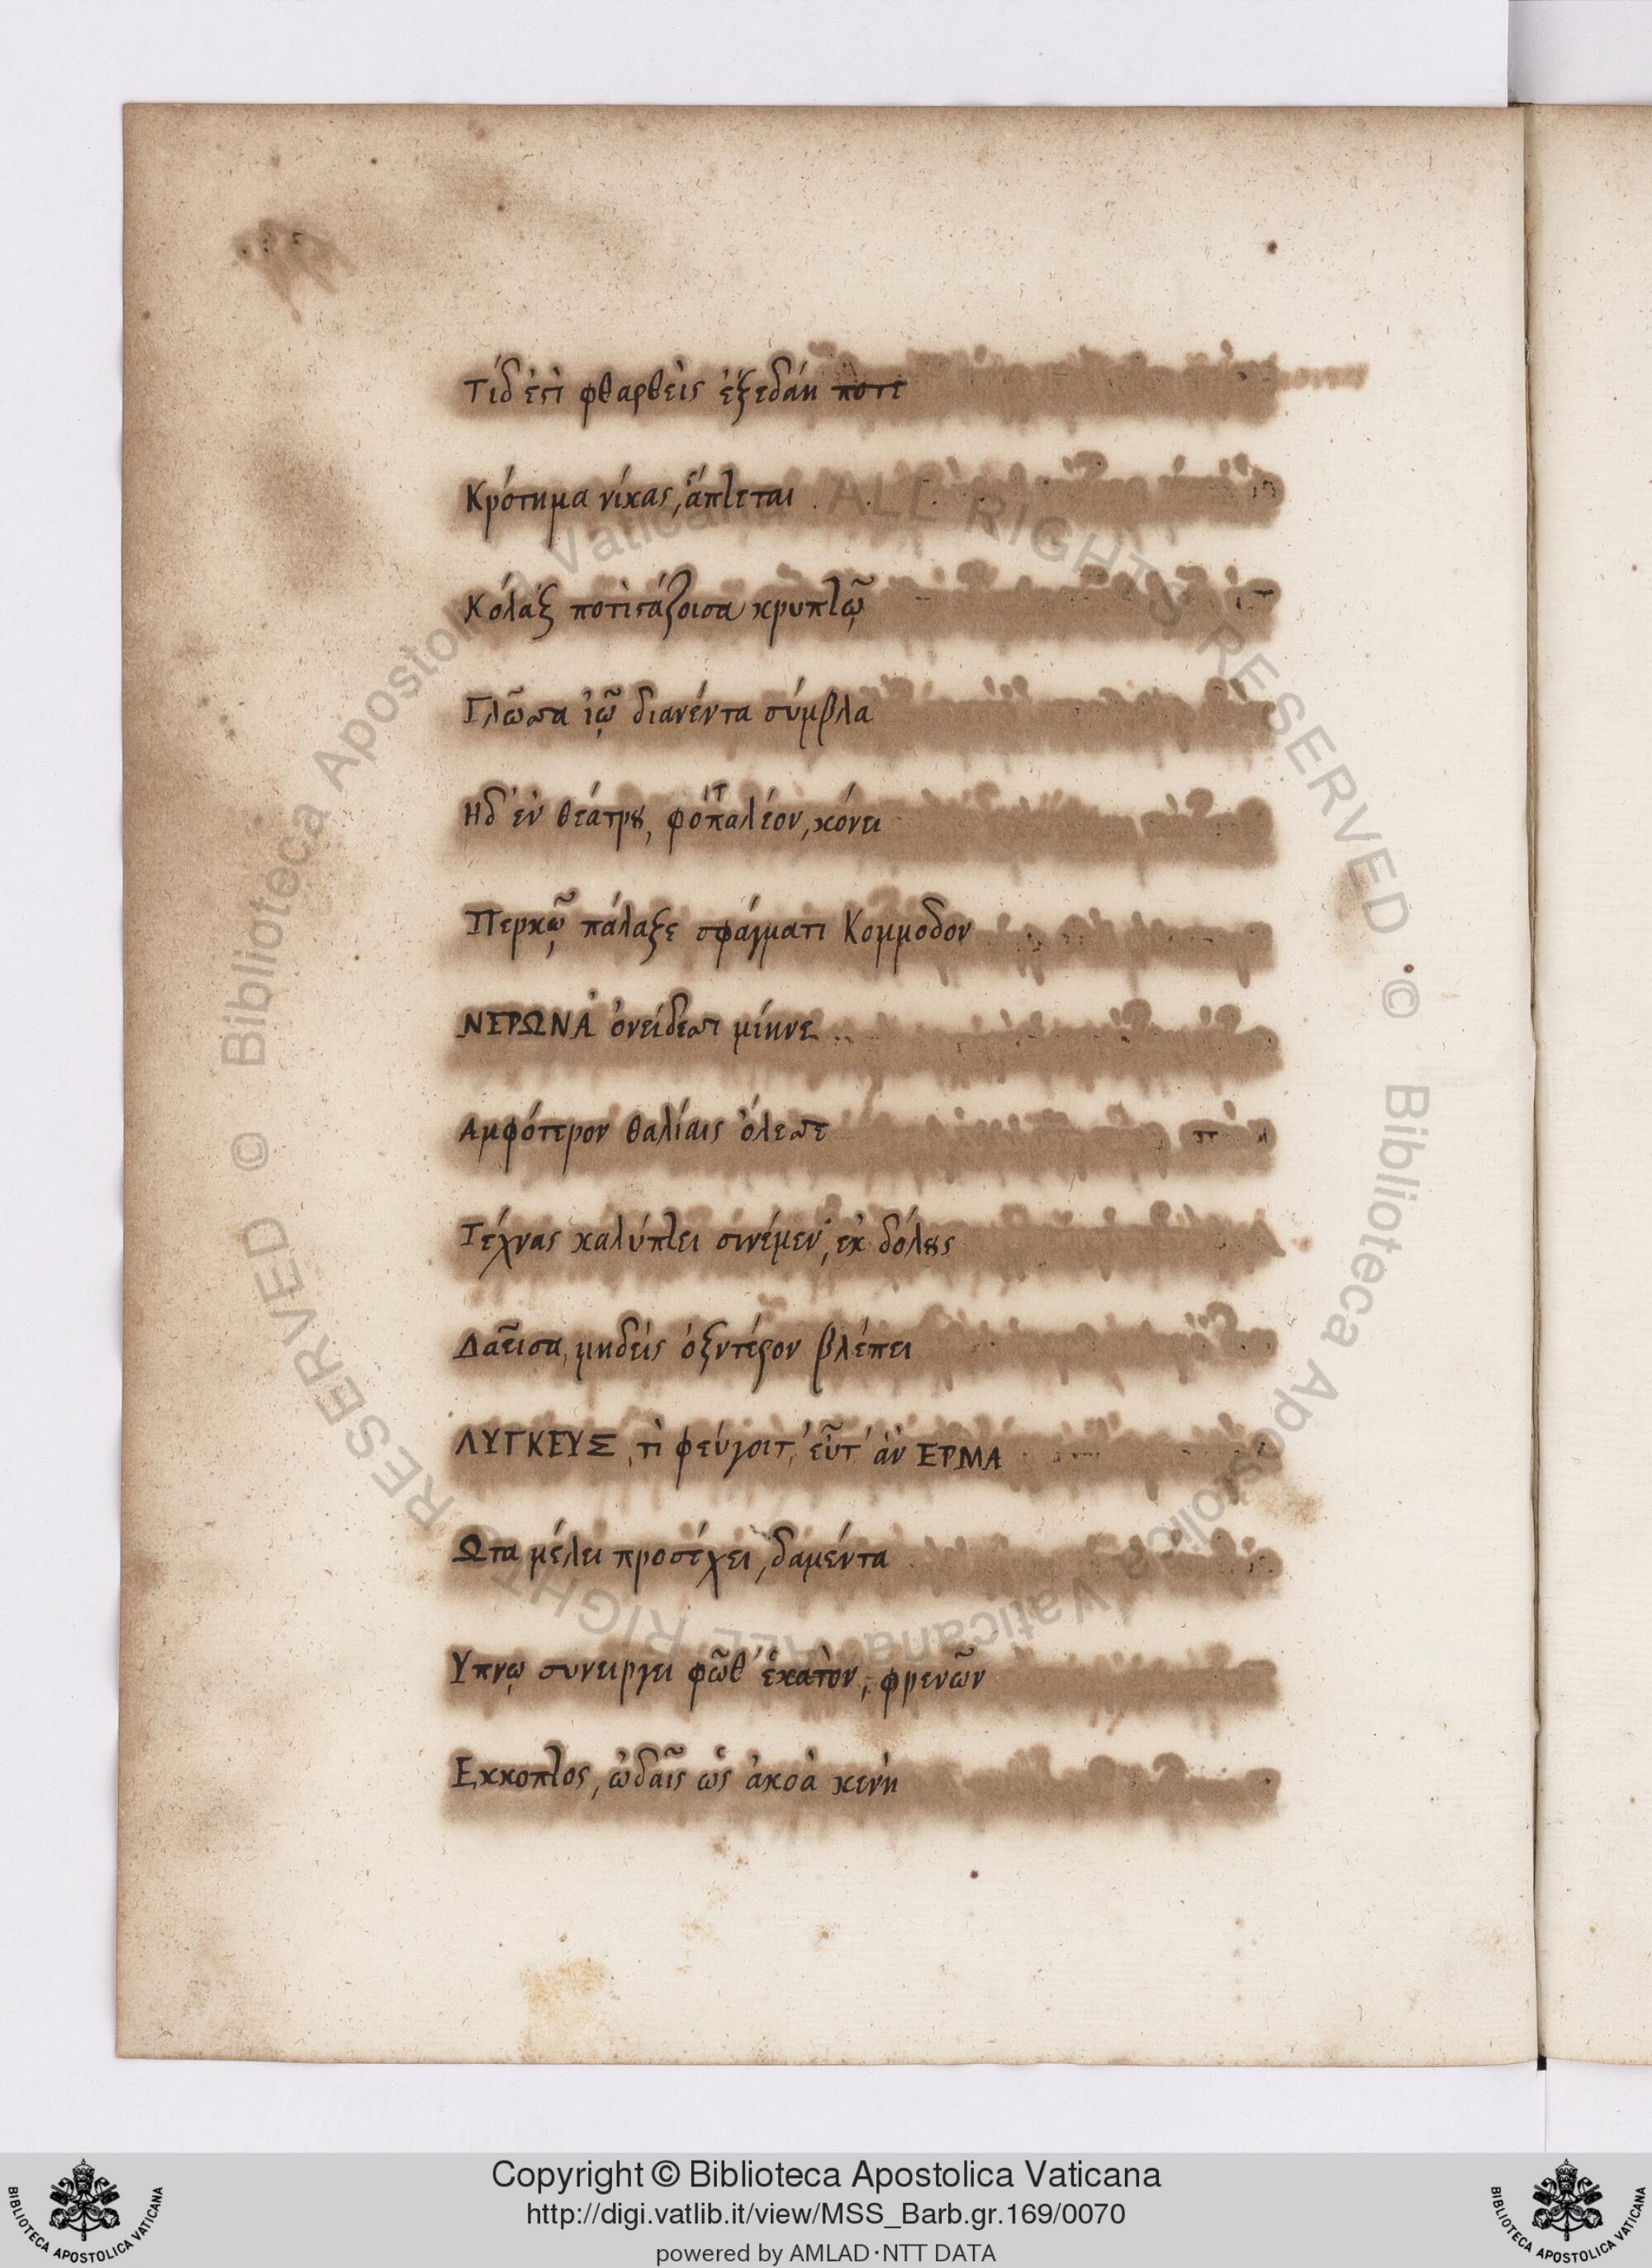 Τίδ' ἐστὶ φθαρθεὶς ἐξεδάη ποτε
Κρότημα νίκας, ἅπτεται
Κόλαξ ποτιστάζοισα κρυπτῷ
Γλῶσσα ἰῷ διανέντα σύμβλα
Ηδ' ἐν θεάτρου, φοιταλέον, κόνει
Περκῷ πάλαξε σφάγματι Κομμοδον
ΝΕΡΩΝΑ ὀνείδεσσι μίηνε
Αμφότερον θαλίαις ὄλεσσε
Τέχνας καλύπτει σινέμεν, ἐκ δόλους
Δαεῖσα, μηδεὶς ὀξντέρον βλέπει
ΛΥΓΚΕΥΣ, τὶ φεύγοιτ', εὖτ' ἀν ΕΡΜΑ
Ωτα μέλει προσέχει, δαμέντα
Υπνῳ συνειργει φῶθ' ἑκατὸν, φρενῶν
Εκκοπτος, ὠδαῖς ὡς ἀκοὰ κενὴ
Copyright © Biblioteca Apostolica Vaticana
http://digi.vatlib.it/view/MSS_Barb.gr.169/0070
powered by AMLAD·NTT DATA
BIBLIOTECA APOSTOLICA VATICANA
BIBLIOTECA APOSTOLICA VATICANA
© Biblioteca Apostolica Vaticana ALL RIGHTS RESERVED © Biblioteca Apostolica Vaticana ALL RIGHTS RESERVED